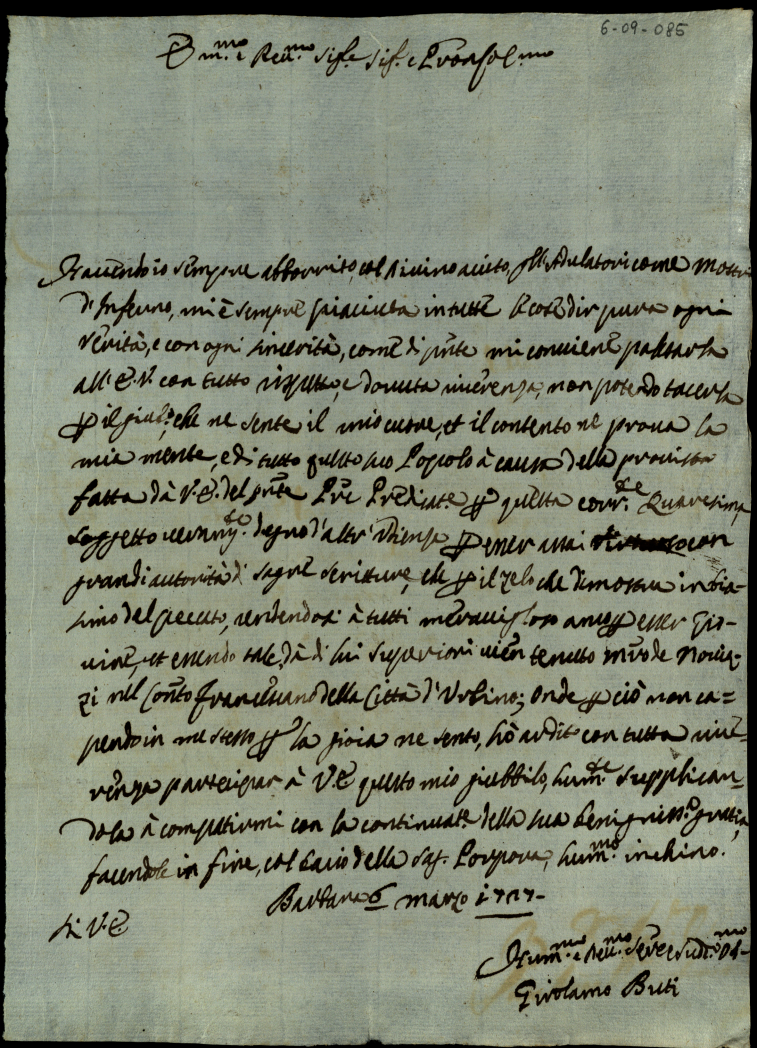 6-09-085
E.mo e Rev.mo Sig.e Sig.e e Pron Col.mo
Havendo io sempre abborrito, col divino aiuto, gl'Adulatori come Mostri
d'Inferno, mi è sempre piaciuta in tutte le cose dir pura ogni
verità, e con ogni sincerità, come di pñte mi conviene palesarla
all'E.V. con tutto rispetto, e dovuta riverenza, non potendo tacerla
p il giub.o, che ne sente il mio cuore, et il contento ne prova la
mia mente, e di tutto questo suo Popolo à causa della provista
fatta dà V.E. del pñte Pre Predicat.e p questa corr.te Quaresima
soggetto veram.te degno d'altr'Udienza p esser assai con
grandi autorità di Sagre Scritture, e p il zelo che dimostra in bia-
simo del peccato, rendendosi à tutti meraviglioso anco p esser gio-
vine, et essendo tale, dà di lui Superiori vien tenuto Mro de Noviz-
zi nel Conto Francescano della Città d'Urbino; Onde p ciò non ca=
pendo in me stesso p la gioia ne sento, hò ardito con tutta rive-
renza partecipar à V.E questo mio giubbilo, hum.te supplican-
dola à compatirmi con la continuat.e della sua benigniss.a gratia,
facendole in fine, col bacio della Sag. Porpora, hum.mo inchino.
Barbara 6 marzo 1727-
Di V.E
Hum.mo e Rev.mo Serv.e e Sudd.o Ob.mo
Girolamo Buti